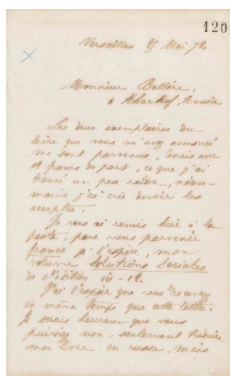 120
Versailles 25 Mai 72
Monsieur Ballère,
à Kharkof, Russie
Les deux exemplaires du
livre que vous m'avez annoncé
me sont parvenus, mais avec
18 francs de port, ce que j'ai
trouvé un peu raide, néan-
moins j'ai cru devoir les
accepter.
Je vous ai remis hier à la
poste, pour vous parvenir
franco je l'espère, mon
volume Solutions Sociales
de l'édition in-18.
J'ai l'espoir que vous recevrez
en même temps que cette lettre.
Je serais heureux que vous
puissiez non-seulement traduire
mon livre en russe, mais